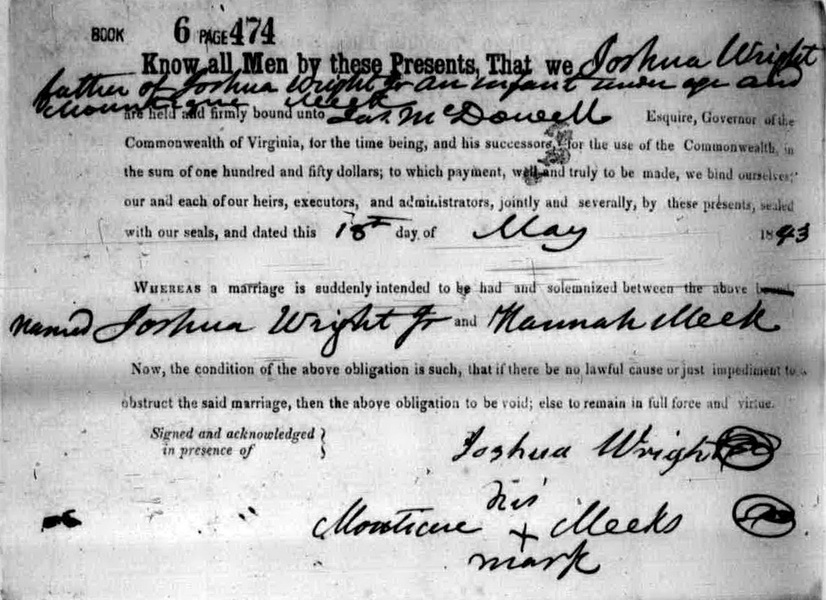 BOOK 6 PAGE 474
Know all Men by these Presents, That we Joshua Wright
father of Joshua Wright Jr an infant under age and
Mountique Meek
are held and firmly bound unto Jas. McDowell Esquire, Governor of the
Commonwealth of Virginia, for the time being, and his successors, for the use of the Commonwealth, in
the sum of one hundred and fifty dollars; to which payment, well and truly to be made, we bind ourselves,
our and each of our heirs, executors, and administrators, jointly and severally, by these presents, sealed
with our seals, and dated this 18th day of May 1843
WHEREAS a marriage is suddenly intended to be had and solemnized between the above bound
named Joshua Wright Jr and Hannah Meek
Now, the condition of the above obligation is such, that if there be no lawful cause or just impediment to
obstruct the said marriage, then the above obligation to be void; else to remain in full force and virtue.
Signed and acknowledged }
in presence of }
Joshua Wright
his
Monticue + Meeks
mark